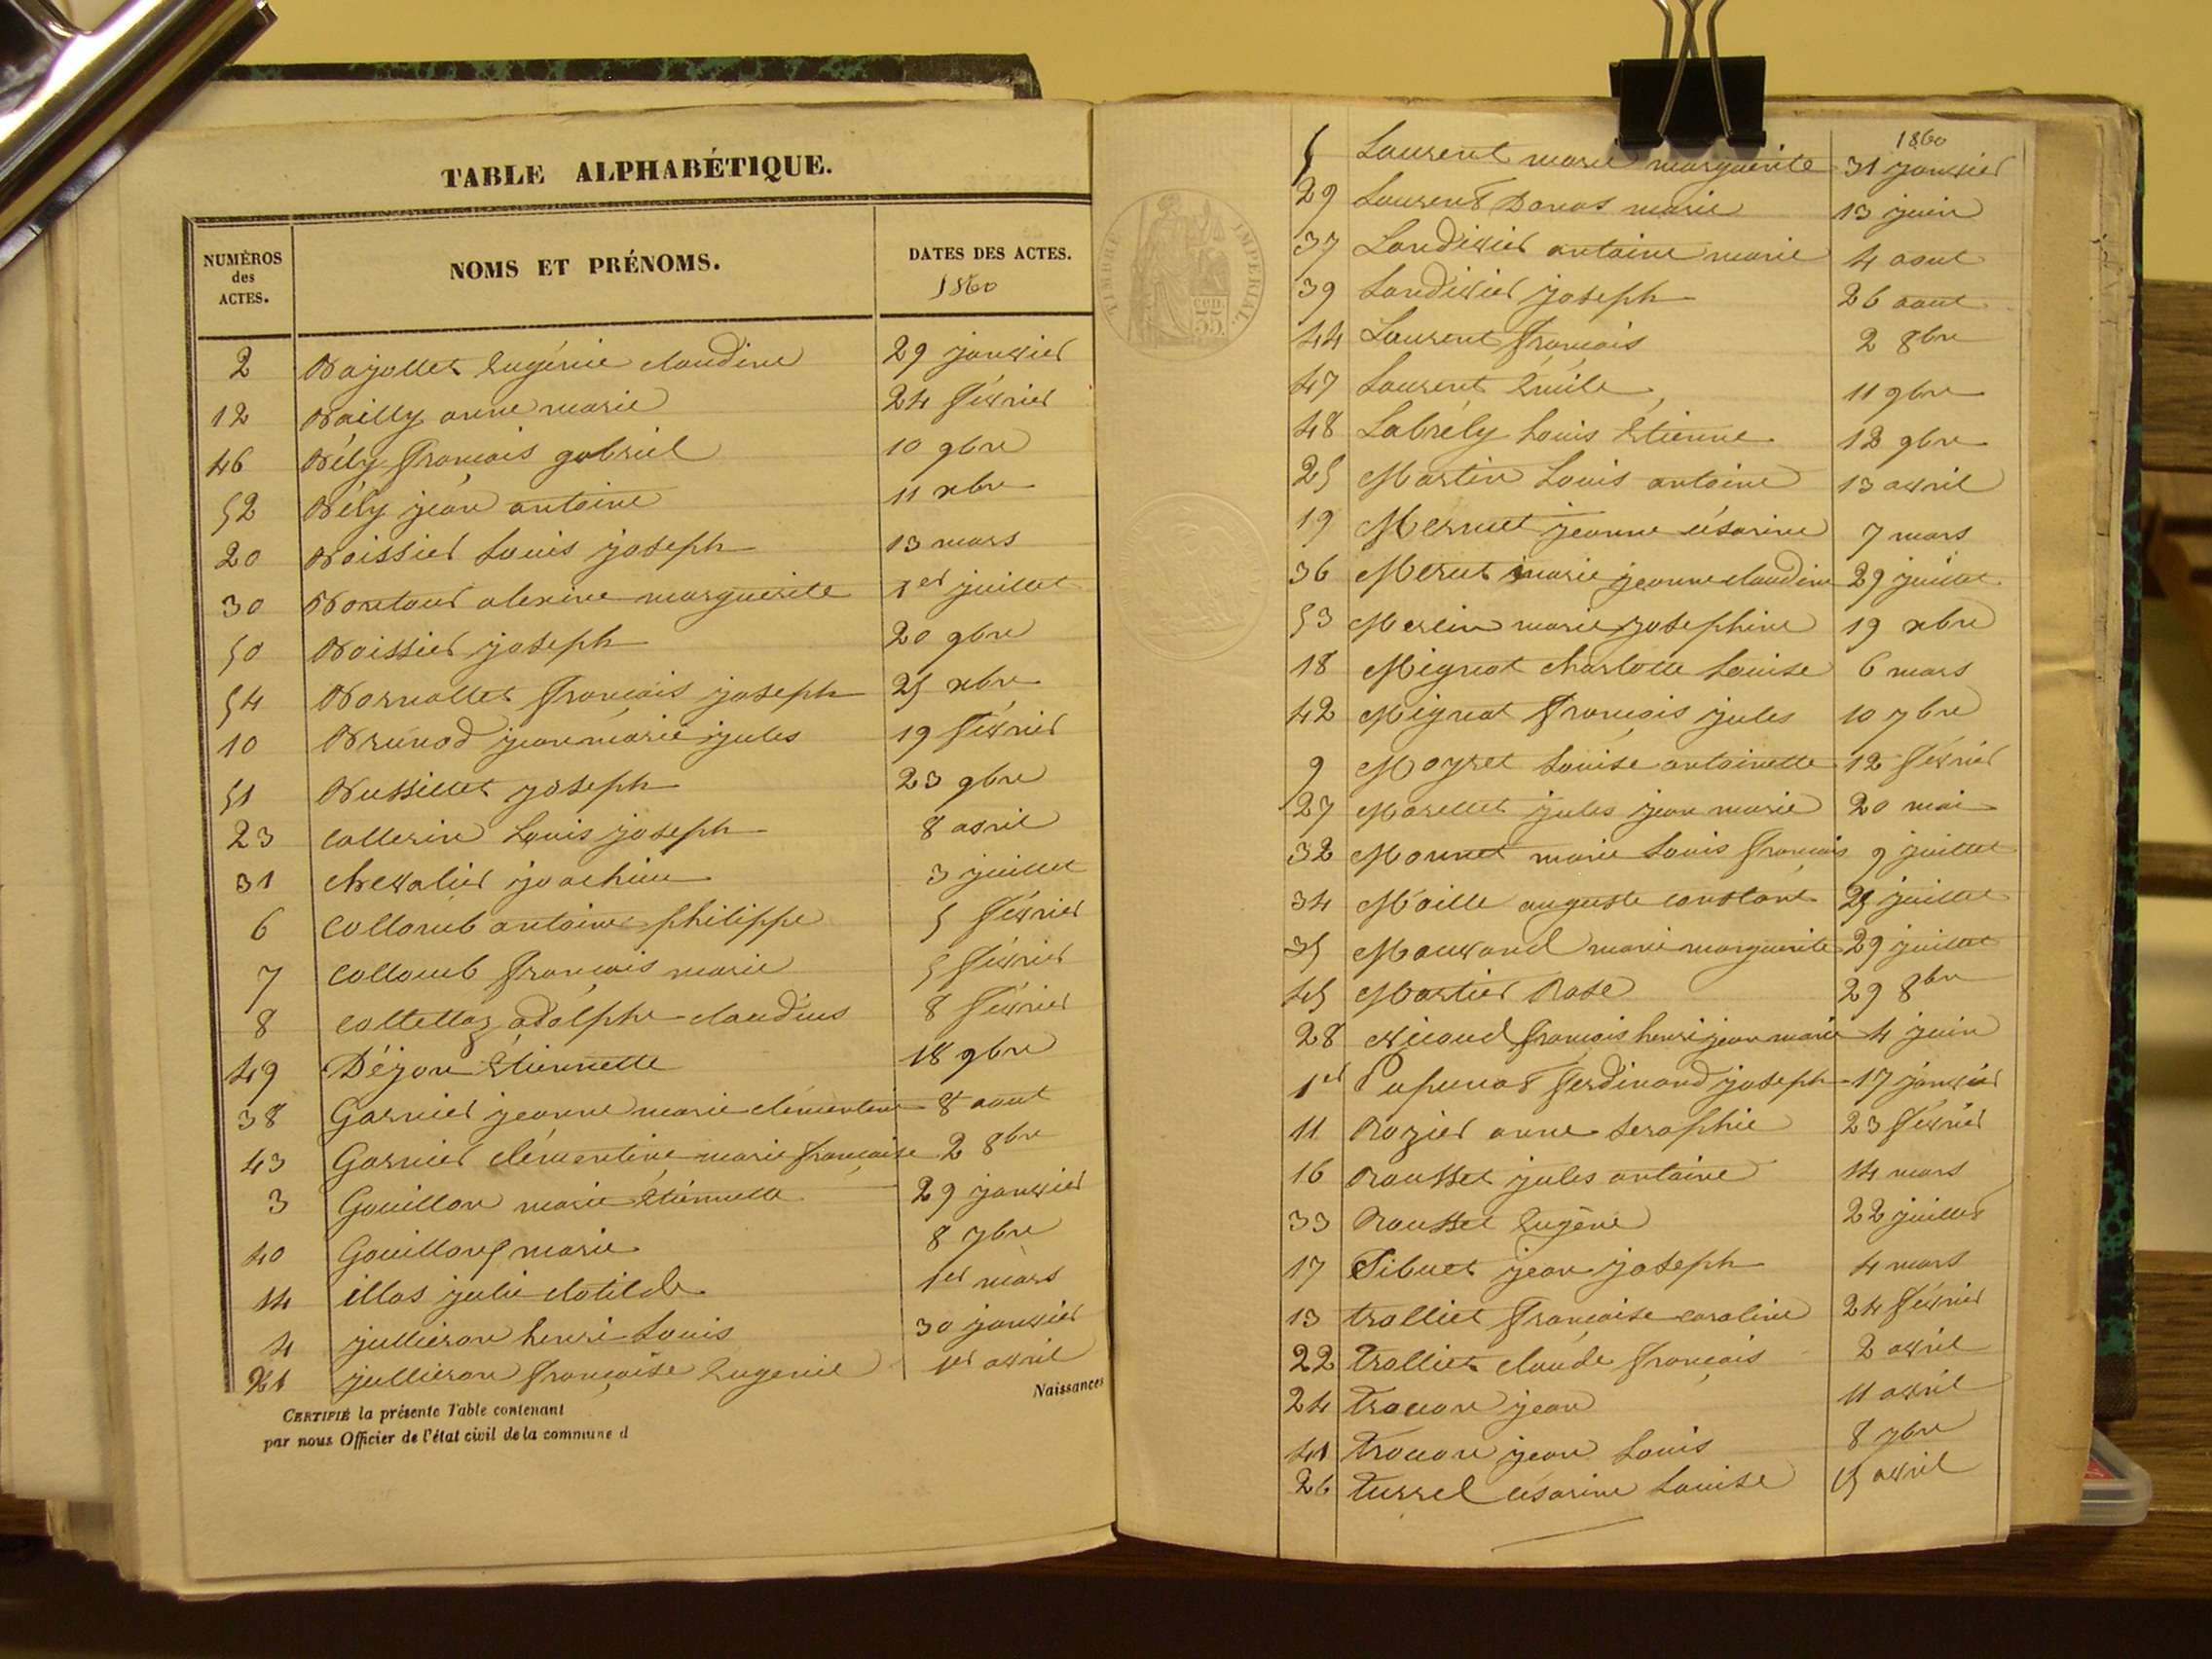 TABLE ALPHABÉTIQUE.
NUMÉROS des ACTES. NOMS ET PRÉNOMS. DATES DES ACTES.
1860
2 Bajollet Eugénie claudine 29 janvier
12 Bailly anne marie 24 février
46 Bély françois gabriel 10 9bre
52 Bély jean antoine 11 xbre
20 Boissier Louis joseph 13 mars
30 Bontour alexine marguerite 1er juillet
50 Boissier joseph 20 9bre
54 Bornallet françois joseph 25 xbre
10 Brunod jean marie jules 19 février
51 Bussillet joseph 23 9bre
23 Collerin Louis joseph 8 avril
31 chevalier joachim 3 juillet
6 Collomb antoine philippe 5 février
7 Collomb françois marie 5 février
8 Collettaz adolphe claudius 8 février
49 Déjon Etiennette 18 9bre
38 Garnier jeanne marie clémentine 8 aout
43 Garnier clémentine marie françoise 2 8bre
3 Gouillon marie Etiennette 29 janvier
40 Gouillon marie 8 7bre
14 illas julie clotilde 1er mars
4 jullieron henri Louis 30 janvier
21 jullieron françoise Eugenie 1er avril
Naissances
CERTIFIÉ la présente Table contenant
par nous Officier de l'état civil de la commune d
TIMBRE IMPERIAL.
1860
5 Laurent marie marguerite 31 janvier
29 Laurent Donas marie 13 juin
37 Landivier antoine marie 4 aout
39 Landivier joseph 26 aout
44 Laurent françois 2 8bre
47 Laurent Emile 11 9bre
48 Labrély Louis Etienne 12 9bre
25 Martin Louis antoine 13 avril
19 Mermet jeanne césarine 7 mars
36 Merut marie jeanne claudine 29 juillet
53 Merlin marie josephine 19 xbre
18 Mignot charlotte Louise 6 mars
42 Mignot françois jules 10 7bre
9 Moyret Louise antoinette 12 février
27 Morellet jules jean marie 20 mai
32 Monnet marie Louis françois 9 juillet
34 Moille auguste constant 25 juillet
35 Mouvand marie marguerite 29 juillet
45 Mortier Rose 29 8bre
28 Nicoud françois henri jean marie 4 juin
1er Papunat ferdinand joseph 17 janvier
11 Rozier anne seraphie 23 février
16 Rousset jules antoine 14 mars
33 Rousset Eugène 22 juillet
17 Tibuet jean joseph 4 mars
13 trolliet françoise caroline 24 février
22 trolliet claude françois 2 avril
24 trouon jean 11 avril
41 trouon jean Louis 8 7bre
26 turrel césarine Louise 15 avril